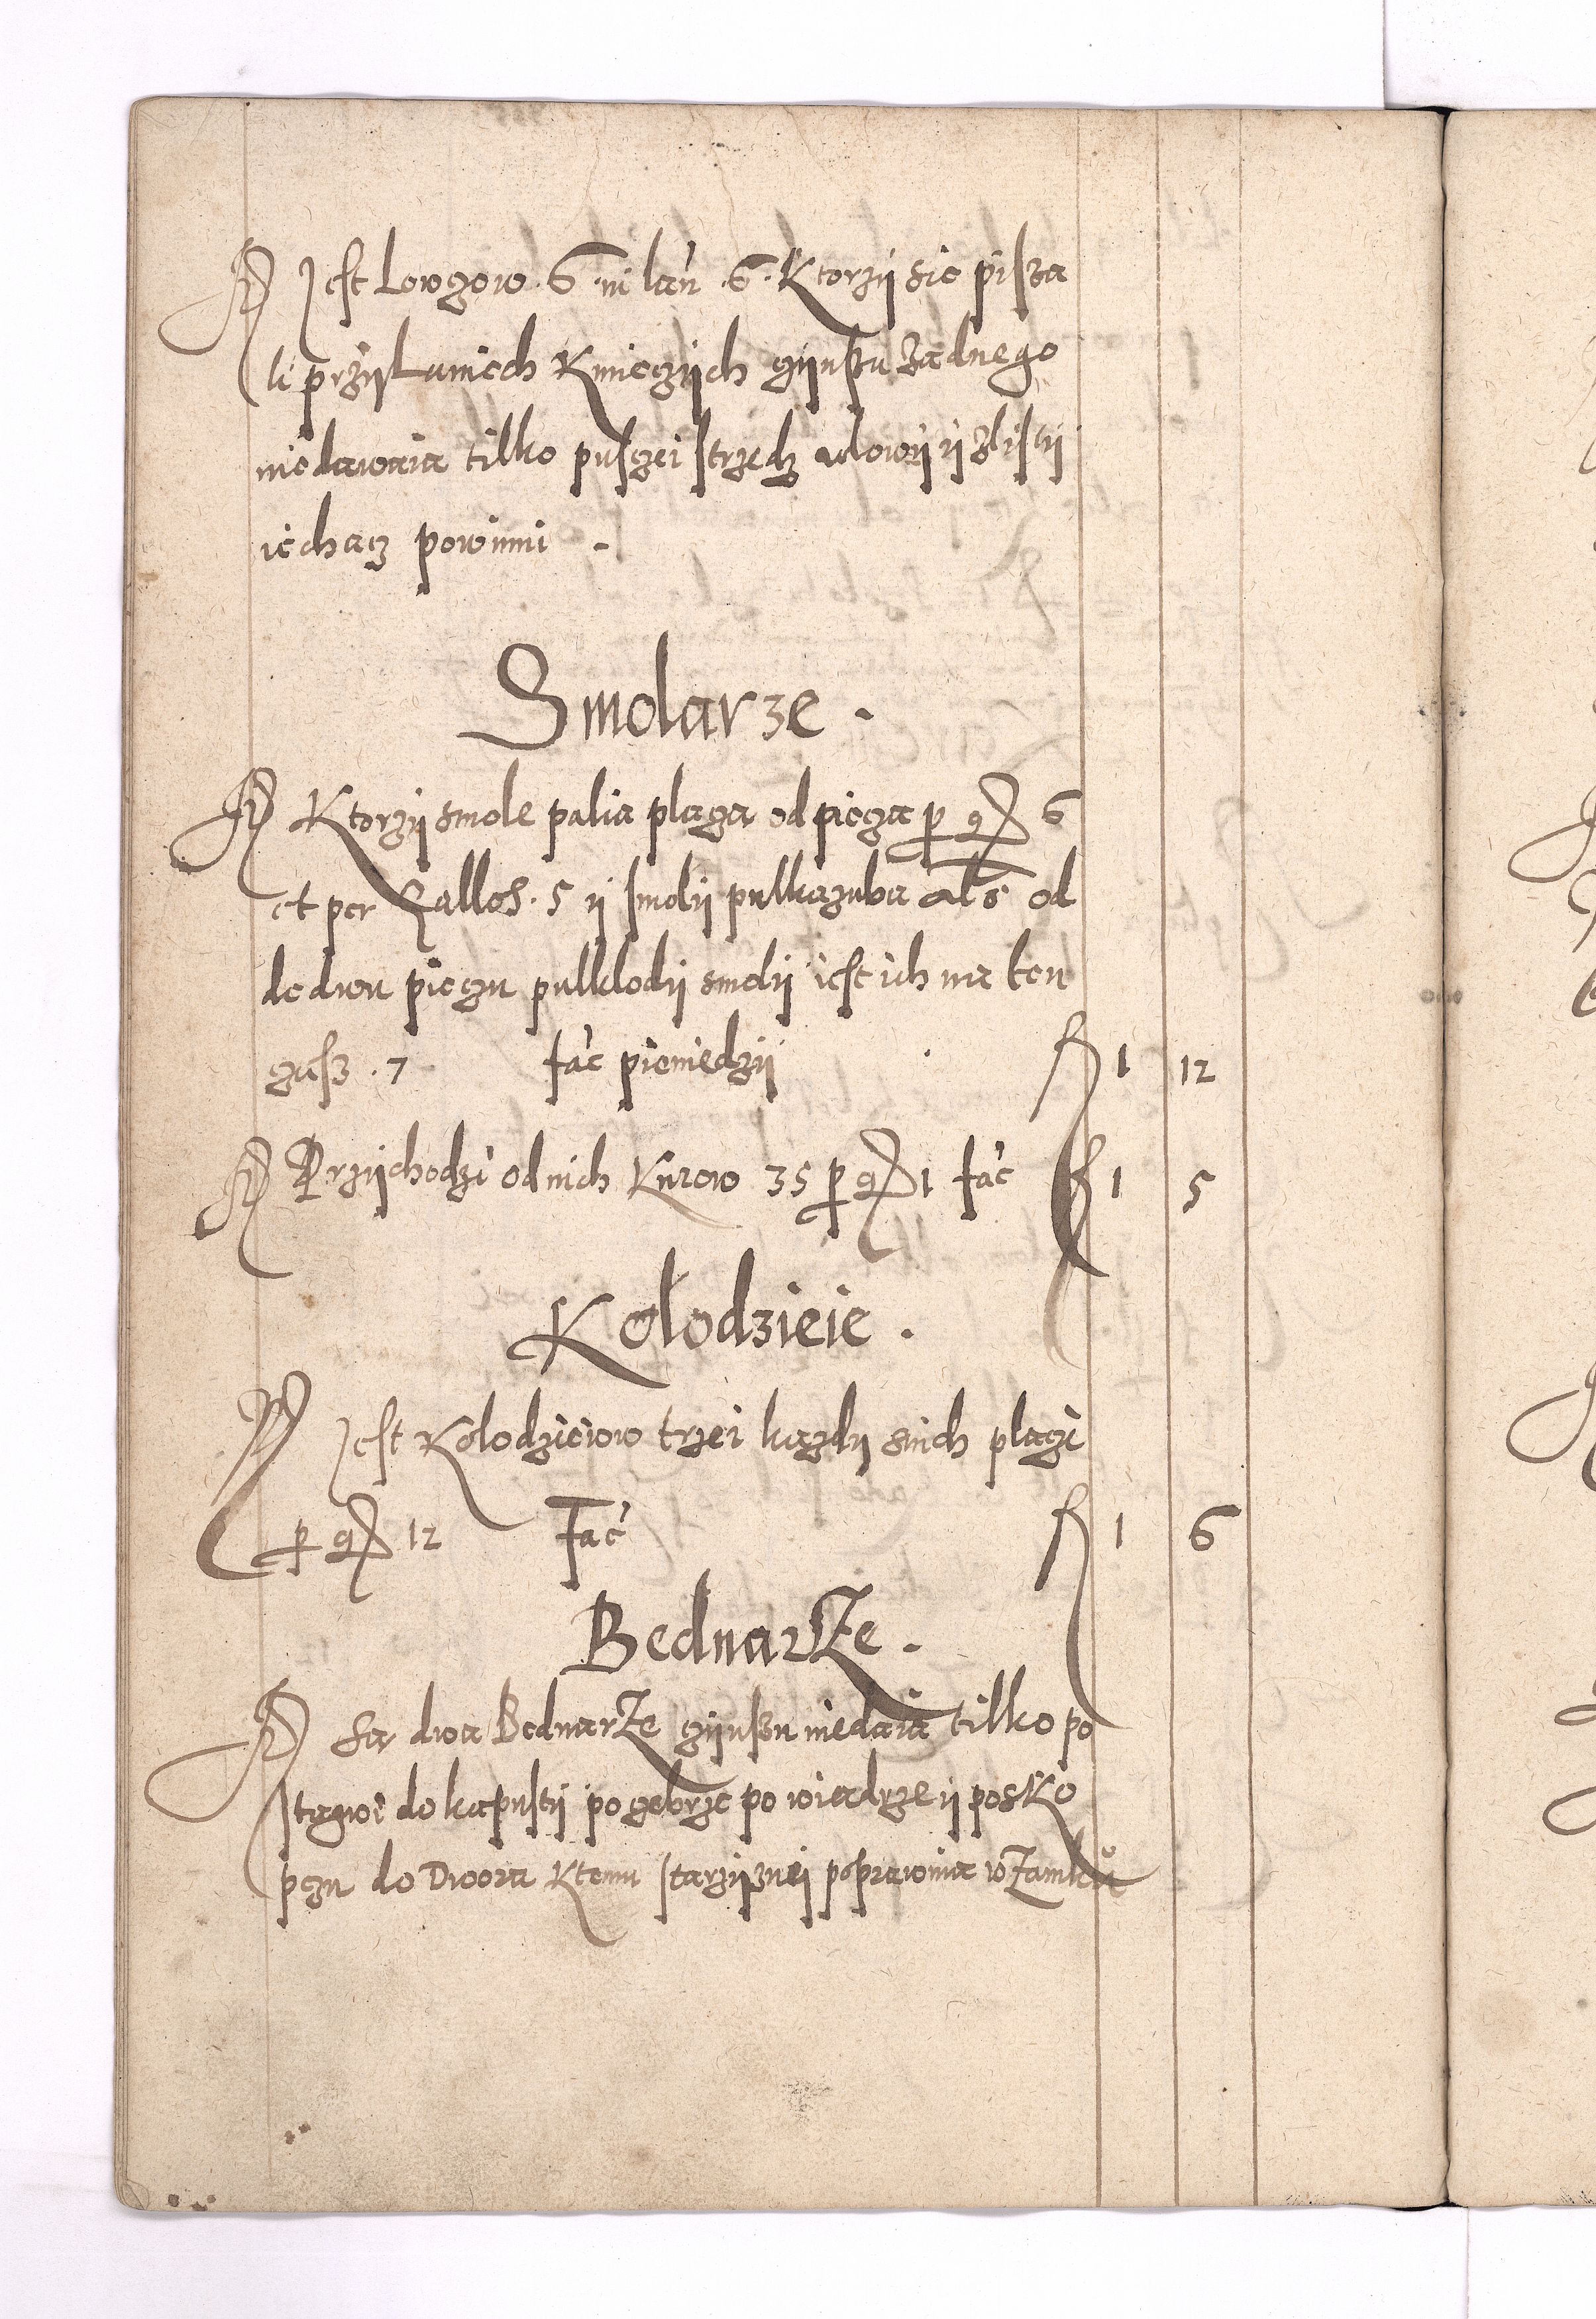 Jest Lowczow . 6 . ni lan . 6 . Ktorzÿ sie pisza
li przÿ Łaniech Kmieczÿch czÿnszu zadnego
nie dawaia tilko puszczei strzedz a Lowÿ ÿ z listÿ
iechacz powinni .
Smolarze .
Ktorzÿ smole palia placza od piecza per gr 6
et per Gallos . 5 ÿ smolÿ pulkazuba als od
de dwu pieczu pulklodÿ smolÿ iest ich na ten
czasz . 7 fac pieniedzÿ f 1 12
Przÿchodzi od nich Kurow 35 per gr 1 fac f 1 5
Kolodzieie .
Jest Kolodzieiow trzei kazdÿ snich placzi
per gr 12 Fac f 1 6
Bednarze .
Sa dwa Bednarze czÿnszu niedaia tilko po
stagwi do kapustÿ po czebrze po wiadrze ÿ po sko
pczu do Dwora Ktemu starzÿznei poprawiua w Zamku